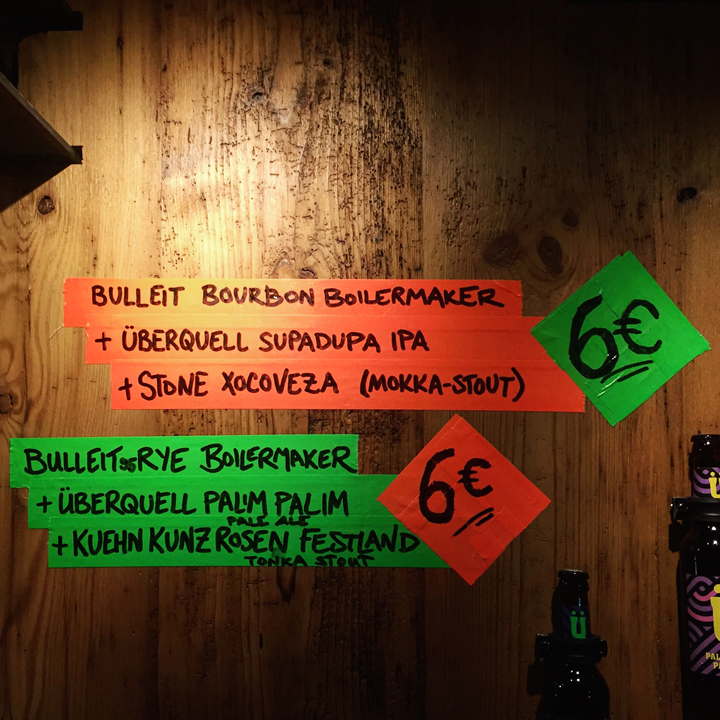 BULLEIT BOURBON BOILERMAKER
+ ÜBERQUELL SUPADUPA IPA
+ STONE XOCOVEZA (MOKKA-STOUT)
6€
BULLEIT 95 RYE BOILERMAKER
+ ÜBERQUELL PAL'M PALIM
PALE ALE
+ KUEHN KUNZ ROSEN FESTLAND
TONKA STOUT
6€
Ü
Ü
PAL